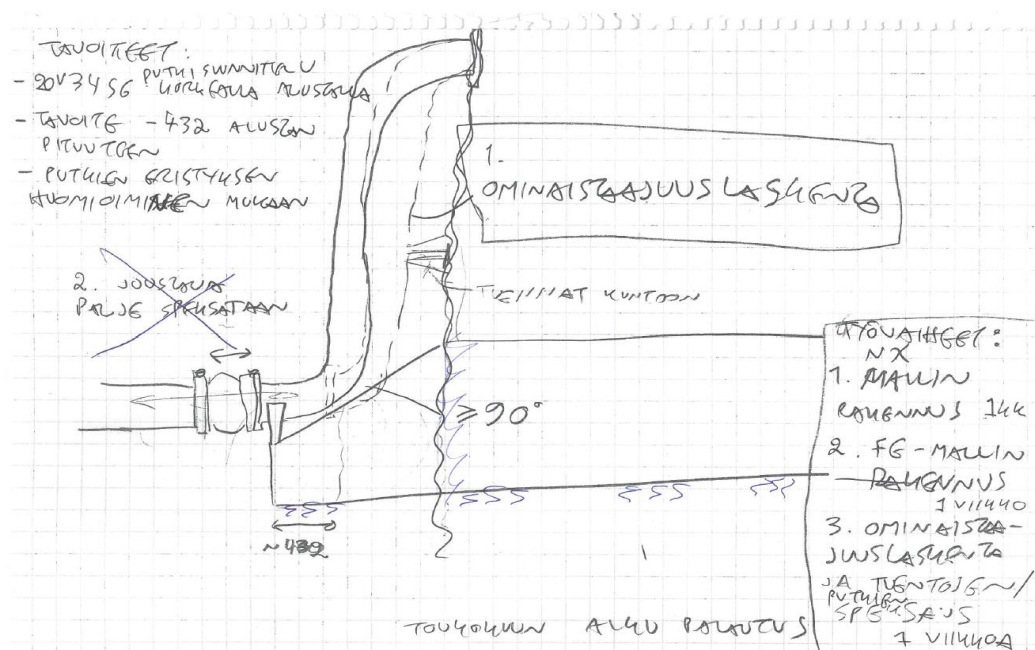 TAVOITTEET:
- 20V34SG PUTKISUUNNITTELU
KORKEALLA ALUSTALLA
- TAVOITE -432 ALUSTAN
PITUUTEEN
- PUTKIEN ERISTYKSEN
HUOMIOIMINEEN MUKAAN
1.
OMINAISTAAJUUSLASKENTA
2. JOUSTAVA
PALJE SPEKSATAAN
TUENNAT KUNTOON
≥90°
~432
TYÖVAIHEET:
NX
1. MALLIN
RAKENNUS 1KK
2. FE-MALLIN
RAKENNUS
1 VIIKKO
3. OMINAISTAA-
JUUSLASKENTA
JA TUENTOJEN/
PUTKIEN
SPEKSAUS
1 VIIKKOA
TOUKOKUUN ALKU PALAUTUS